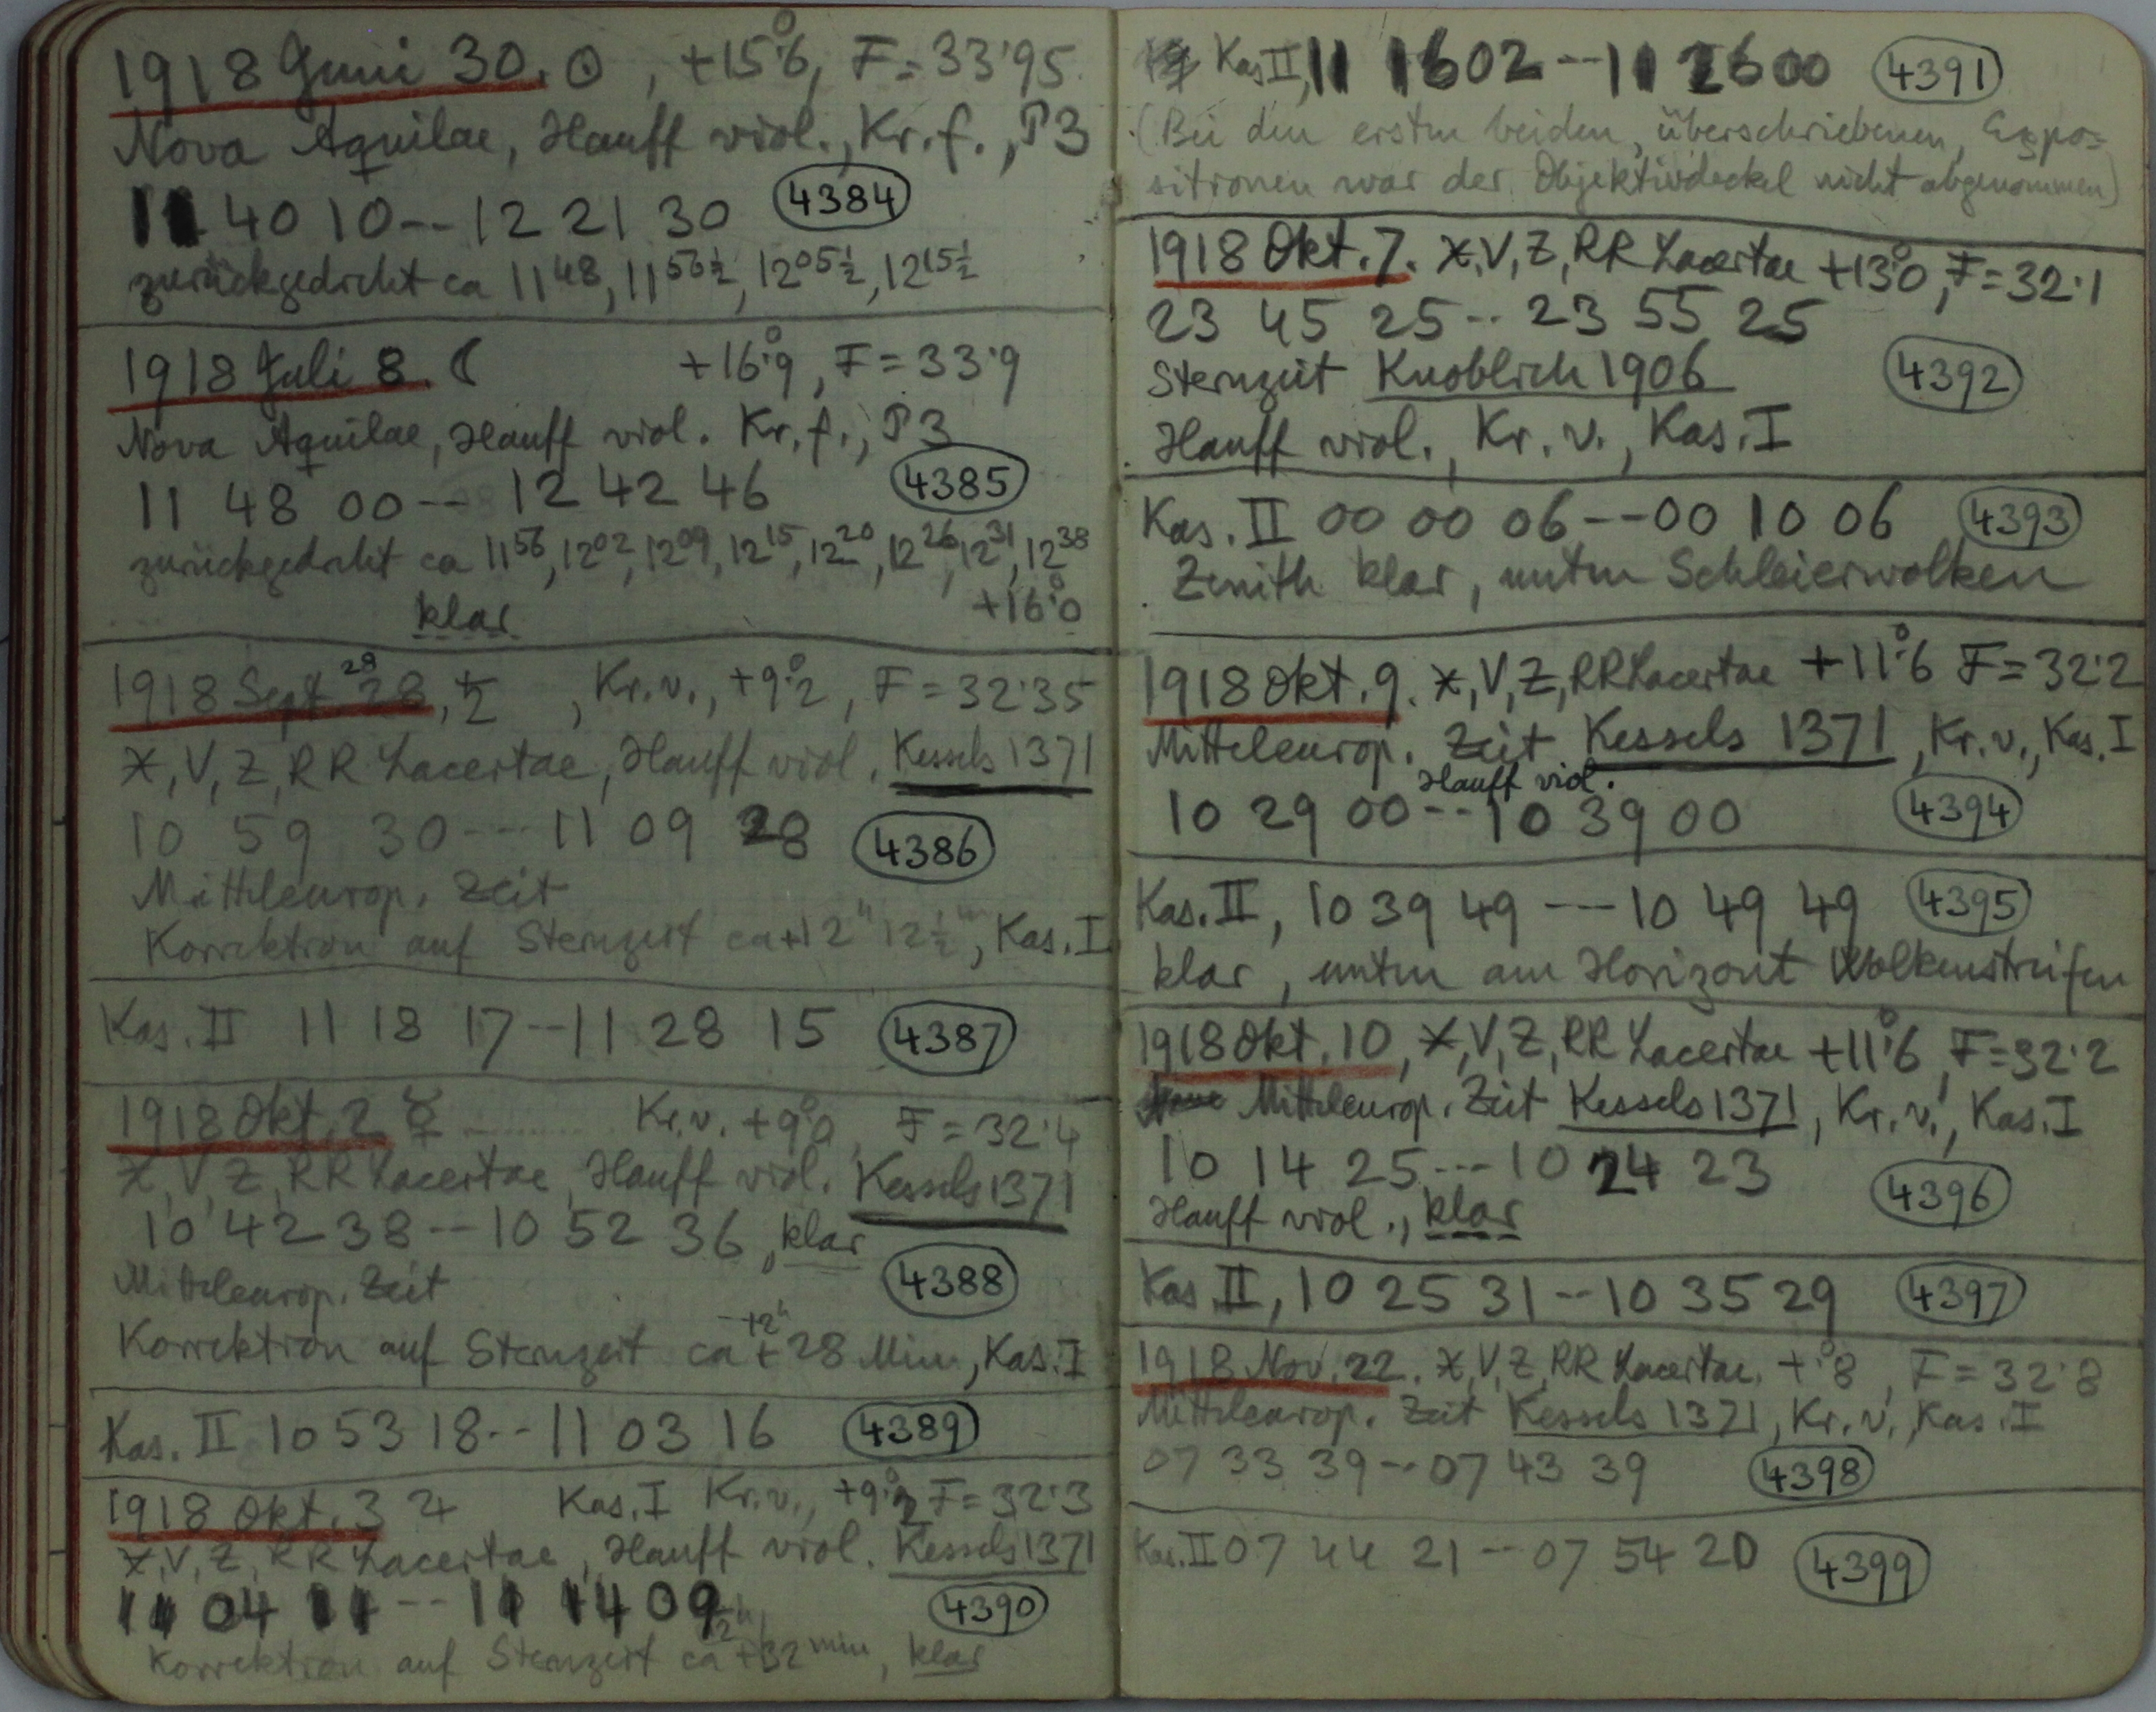 1918 Juni 30. ☉, +15°.6, F = 33.95
Nova Aquilae, Hauff viol., Kr.f., P3
11 40 10--12 21 30 4384
zurückgedreht ca 11 48, 11 56½, 12 05½, 12 15½
1918 Juli 8. ☾ +16°.9, F = 33.9
Nova Aquilae, Hauff viol. Kr.f., P3
11 48 00-- 12 42 46 4385
zurückgedreht ca 11 56, 12 02, 12 09, 12 15, 12 20, 12 26, 12 31, 12 38
klar +16°.0
1918 Sept 28, ♄, Kr.v., +9°.2, F = 32.35
X, V, Z, RR Lacertae, Hauff viol. Kessels 1371
10 59 30---11 09 28 4386
Mitteleurop. Zeit
Korrektion auf Sternzeit ca +12h 12½m, Kas. I
Kas. II 11 18 17--11 28 15 4387
1918 Okt. 2 ☿ Kr.v. +9°.0, F = 32.4
X, V, Z, RR Lacertae, Hauff viol. Kessels 1371
10 42 38--10 52 36, klar
Mitteleurop. Zeit 4388
Korrektion auf Sternzeit ca +12h +28 Min, Kas. I
Kas. II 10 53 18--11 03 16 4389
1918 Okt. 3 ♃ Kas. I Kr.v., +9°.2 F = 32.3
X, V, Z, RR Lacertae, Hauff viol. Kessels 1371
11 04 11--11 14 09 4390
Korrektion auf Sternzeit ca 12h +32 min, klar
Kas II, 11 16 02--11 26 00 4391
(Bei den ersten beiden, überschriebenen, Expo=
sitionen war der Objektivdeckel nicht abgenommen)
1918 Okt. 7. X, V, Z, RR Lacertae +13°.0, F = 32.1
23 45 25--23 55 25
Sternzeit Knoblich 1906 4392
Hauff viol., Kr.v., Kas. I
Kas. II 00 00 06--00 10 06 4393
Zenith klar, unten Schleierwolken
1918 Okt. 9. X, V, Z, RR Lacertae +11°.6 F = 32.2
Mitteleurop. Zeit Kessels 1371, Kr.v., Kas. I
Hauff viol.
10 29 00--10 39 00 4394
Kas. II, 10 39 49---10 49 49 4395
klar, unten am Horizont Wolkenstreifen
1918 Okt. 10, X, V, Z, RR Lacertae +11°.6, F = 32.2
Mitteleurop. Zeit Kessels 1371, Kr.v., Kas. I
10 14 25---10 24 23 4396
Hauff viol., klar
Kas II, 10 25 31--10 35 29 4397
1918 Nov. 22. X, V, Z, RR Lacertae. +°.8, F = 32.8
Mitteleurop. Zeit Kessels 1371, Kr.v., Kas. I
07 33 39--07 43 39 4398
Kas. II 07 44 21--07 54 20 4399